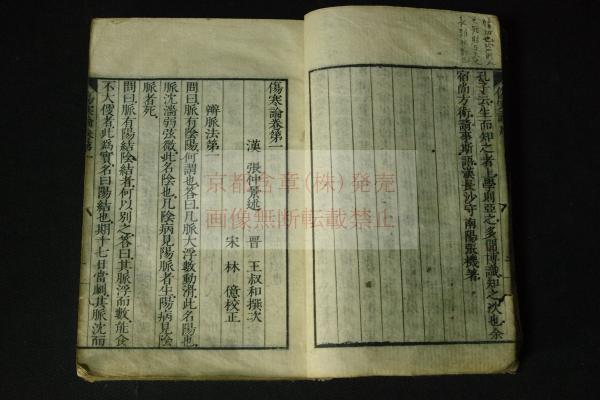 孔子云生而知之者上學則亞之多聞博識知之次也余
宿尚方術請事斯語漢長沙守南陽張機著
傷寒論卷第一
漢 張仲景述 晉 王叔和撰次
宋 林 億校正
辨脈法第一
問曰脈有陰陽何謂也答曰凡脈大浮數動滑此名陽也
脈沈濇弱弦微此名陰也凡陰病見陽脈者生陽病見陰
脈者死
問曰脈有陽結陰結者何以別之答曰其脈浮而數能食
不大便者此為實名曰陽結也期十七日當劇其脈沈而
京都含章(株)発売
画像無断転載禁止